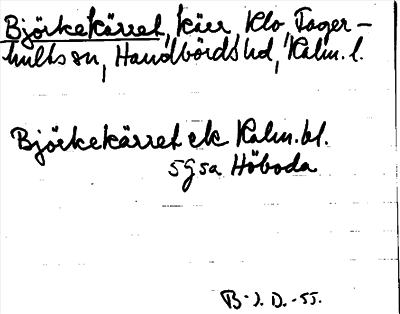 Björkekärret, kärr, Klo, Fager-
hults sn, Handbörds hd, Kalm. l.
Björkekärret ek Kalm. bl.
5g5a Höboda
B. J. D. -55.